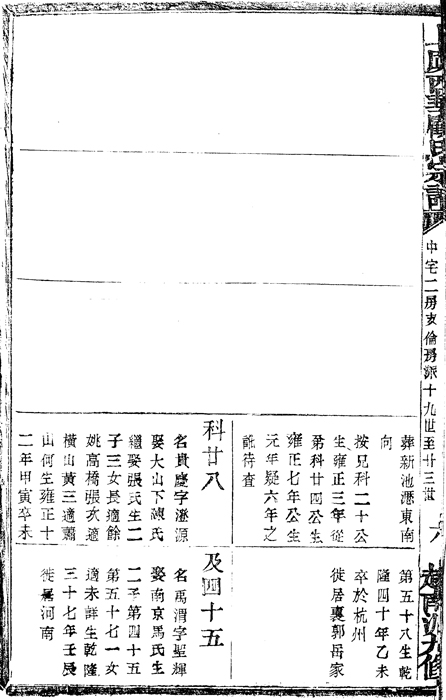 中宅二房亥倫房派十九世至廿三世
六
葬新池灣東南
向
按兄科二十公
生雍正三年從
弟科廿四公生
雍正七年公生
元年疑六年之
訛待查
科廿八
名貴慶字澄源
娶大山下陳氏
繼娶張氏生二
子三女長適餘
姚高橋張次適
橫山黃三適蕭
山何生雍正十
二年甲寅卒未
第五十八生乾
隆四十年乙未
卒於杭州
徙居裏郭岳家
及四十五
名禹渭字聖輝
娶南京馬氏生
二子第四十五
第五十七一女
適未詳生乾隆
三十七年壬辰
徙居河南